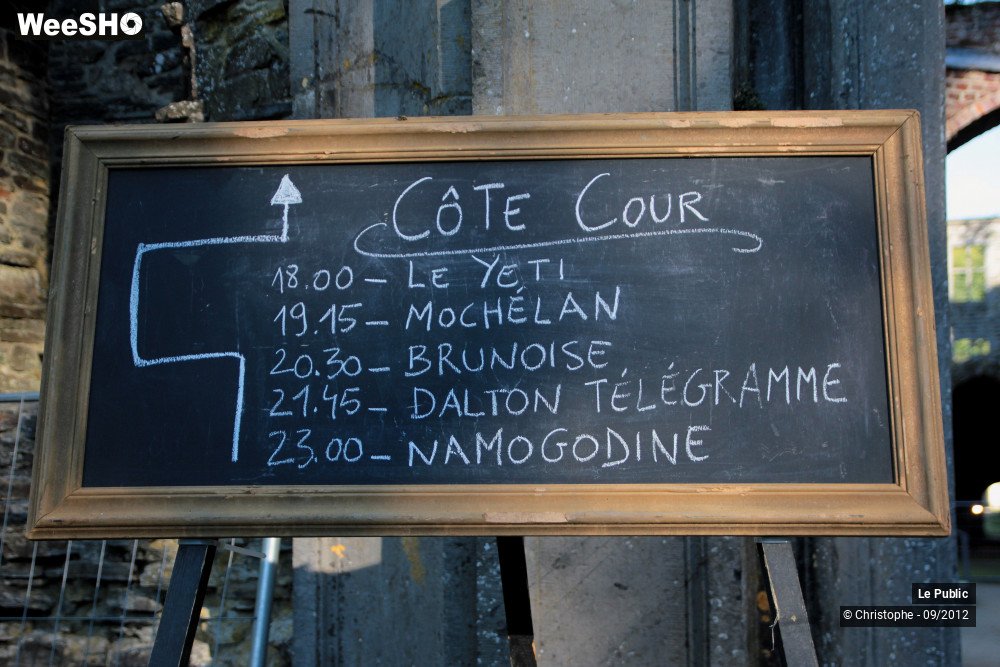 WeeSHO
CÔTE COUR
18.00 — LE YETI
19.15 — MOCHÉLAN
20.30 — BRUNOISE
21.45 — DALTON TÉLÉGRAMME
23.00 — NAMOGODINE
Le Public
© Christophe - 09/2012